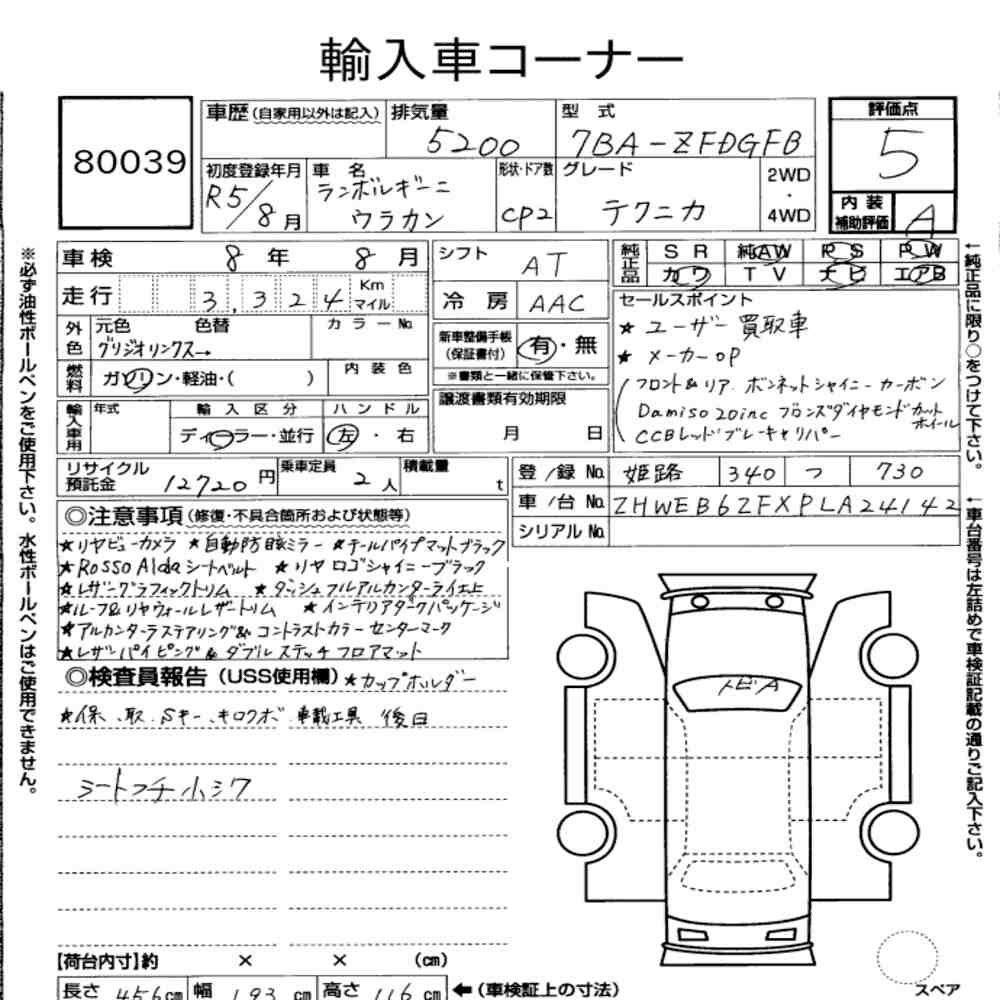 輸入車コーナー
80039
車歴(自家用以外は記入)
排気量 5200
型式 7BA-ZFDGFB
評価点 5
初度登録年月 R5/8月
車名 ランボルギーニ ウラカン
形状・ドア数 CP2
グレード テクニカ
2WD・4WD
内装補助評価 A
車検 8年 8月
シフト AT
純正品 SR 純AW PS PW
カワ TV ナビ エアB
走行 3,324 Km マイル
冷房 AAC
外色 元色 色替 カラーNo.
グリジオリンクス→
新車整備手帳(保証書付) 有・無
※書類と一緒に保管下さい。
燃料 ガソリン・軽油・( )
内装色
譲渡書類有効期限
月 日
輸入車用 年式 輸入区分 ハンドル
ディーラー・並行 左・右
セールスポイント
★ユーザー買取車
★メーカーOP
フロント&リア.ボンネットシャイニーカーボン
Damiso 20inc ブロンズダイヤモンドカットホイール
CCBレッドブレーキャリパー
リサイクル預託金 12720円
乗車定員 2人
積載量 t
登/録No. 姫路 340 つ 730
車/台No. ZHWEB6ZFXPLA24142
シリアルNo.
◎注意事項(修復・不具合箇所および状態等)
★リヤビューカメラ ★自動防眩ミラー ★テールパイプマットブラック
★Rosso Aldaシートベルト ★リヤロゴシャイニーブラック
★レザーグラフィックトリム ★ダッシュフルアルカンターライエ上
★ルーフ&リヤウォールレザートリム ★インテリアダークパッケージ
★アルカンターラステアリング&コントラストカラーセンターマーク
★レザーパイピング&ダブルステッチフロアマット
◎検査員報告(USS使用欄) ★カップホルダー
★保.取.Sキー.キロクボ.車載工具 後日
シートフチ小シワ
トビA
【荷台内寸】約 × × (cm)
長さ 456cm 幅 193cm 高さ 116cm ←(車検証上の寸法)
スペア
※必ず油性ボールペンをご使用下さい。水性ボールペンはご使用できません。
←純正品に限り○をつけて下さい。
←車台番号は左詰めで車検証記載の通りご記入下さい。